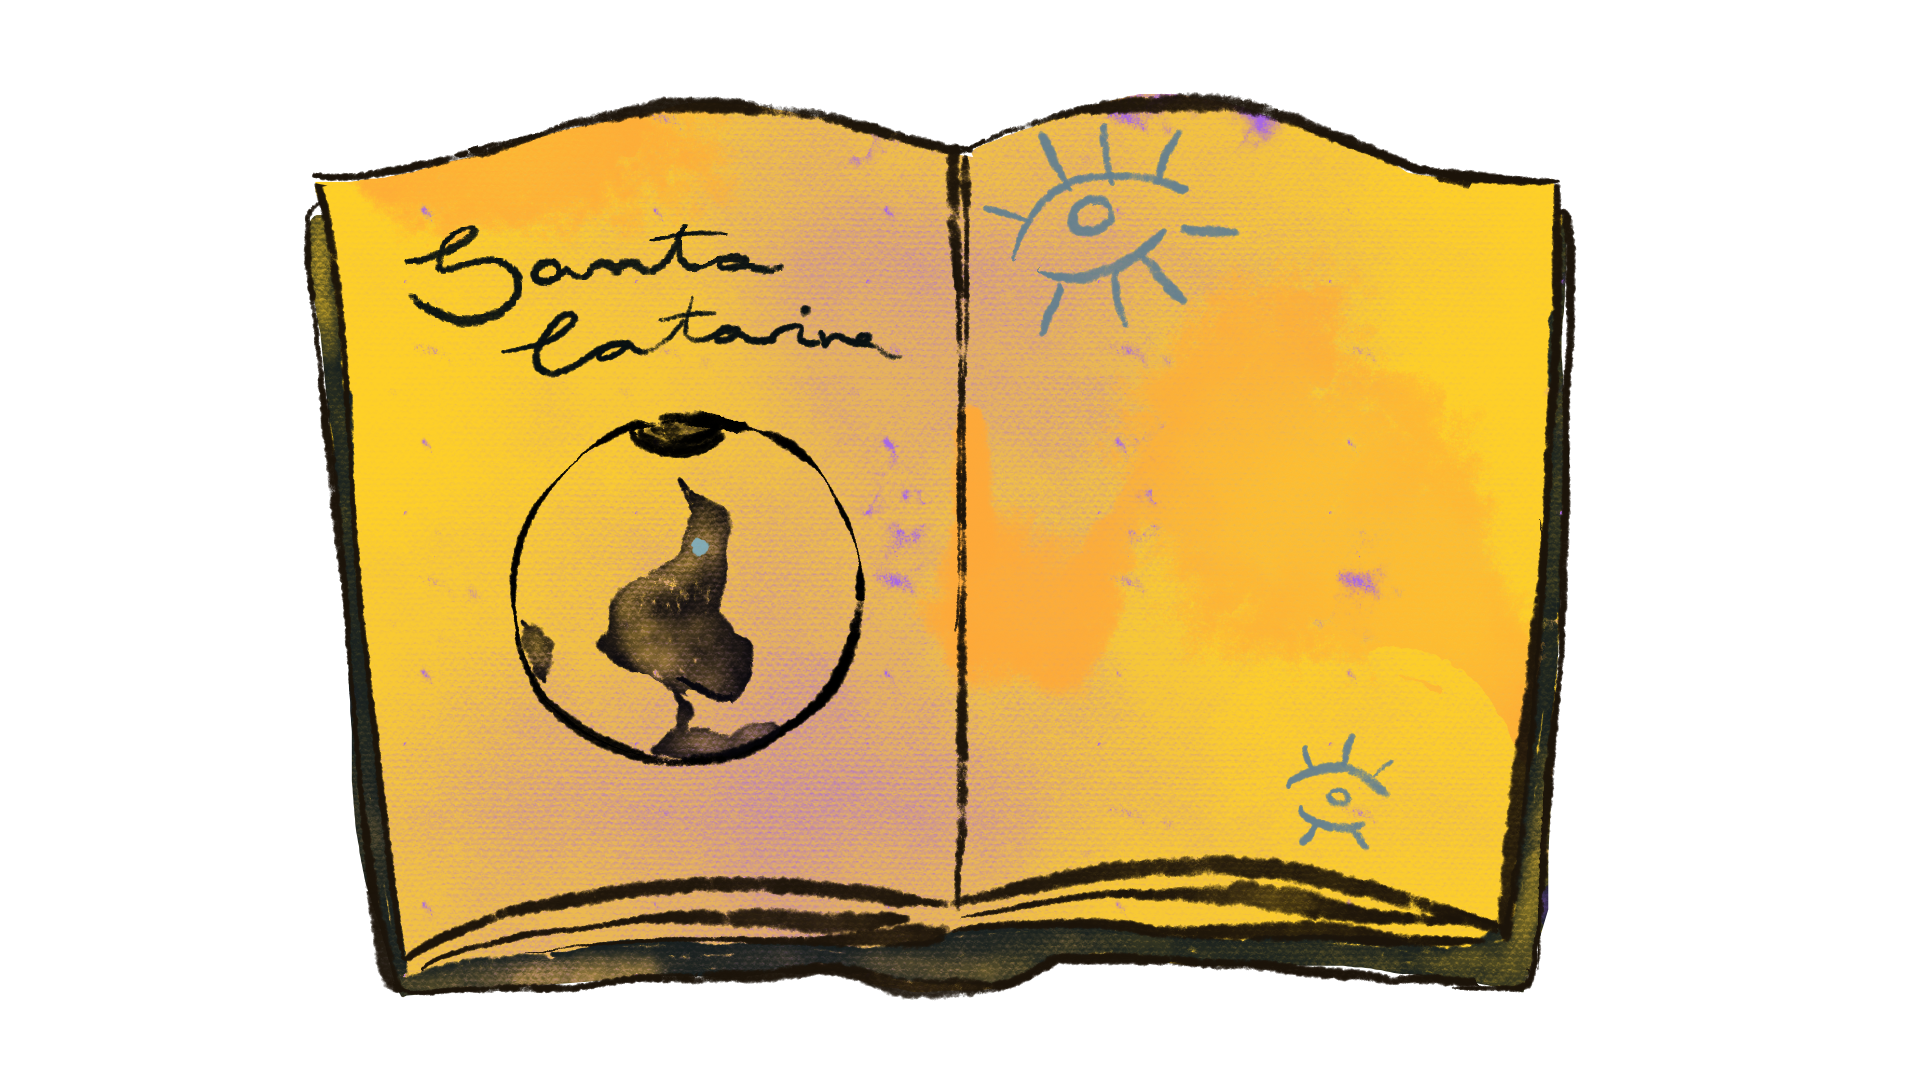 Santa
Catarina